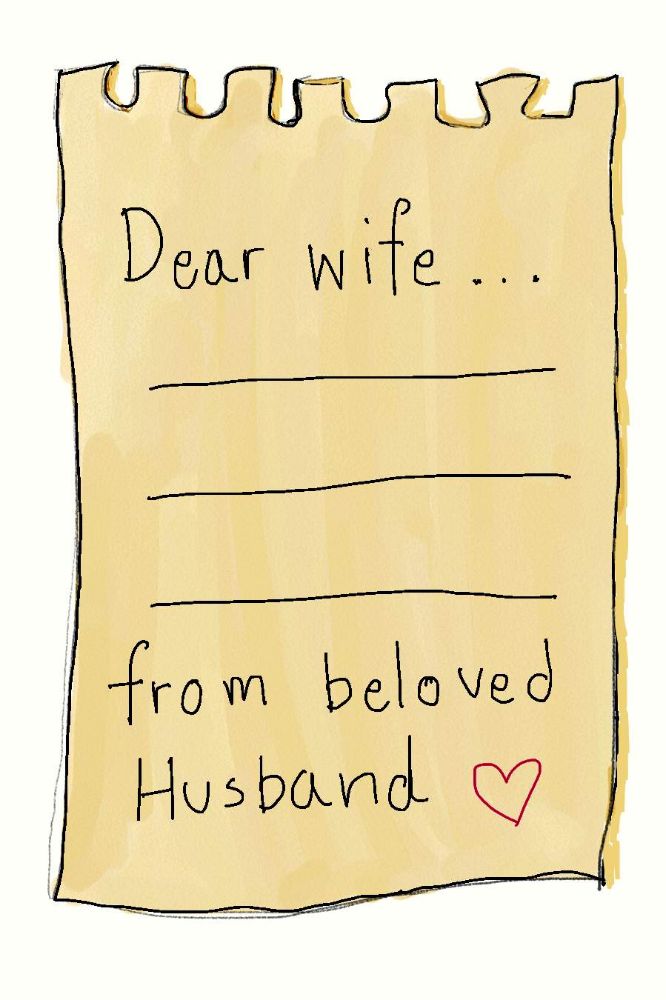 Dear wife...
from beloved
Husband